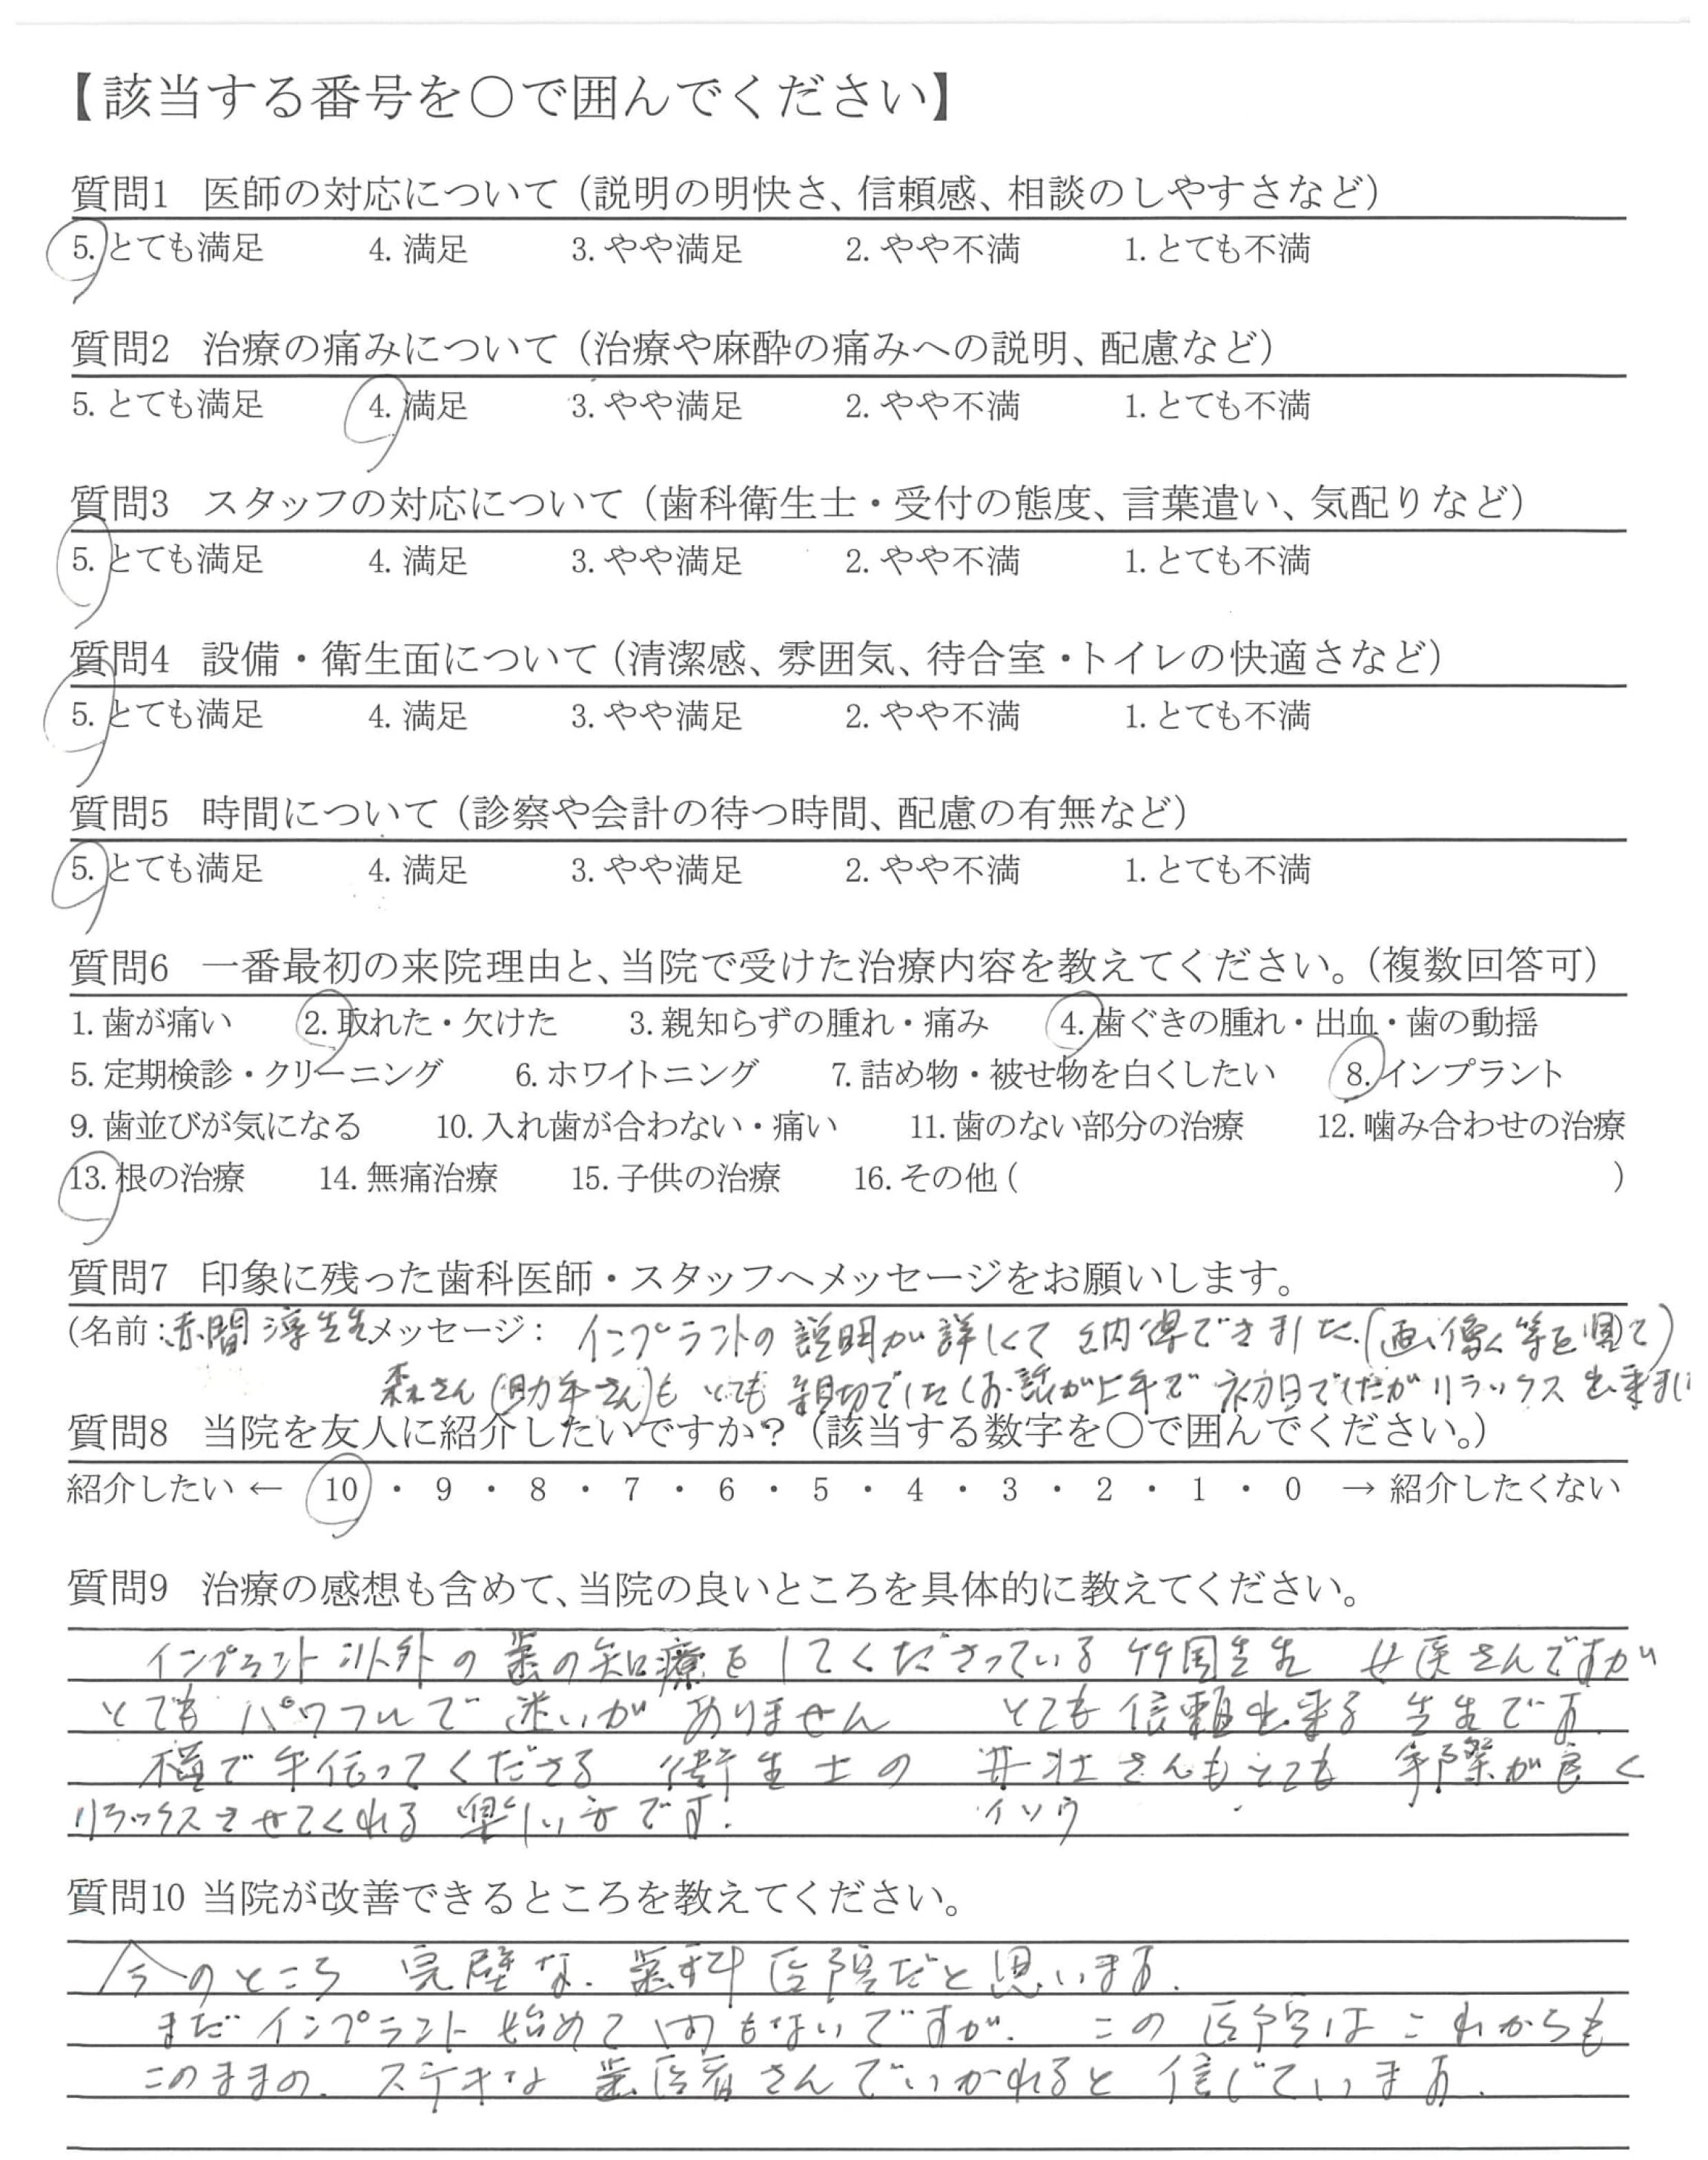 【該当する番号を○で囲んでください】
質問1 医師の対応について（説明の明快さ、信頼感、相談のしやすさなど）
5. とても満足 4. 満足 3. やや満足 2. やや不満 1. とても不満
質問2 治療の痛みについて（治療や麻酔の痛みへの説明、配慮など）
5. とても満足 4. 満足 3. やや満足 2. やや不満 1. とても不満
質問3 スタッフの対応について（歯科衛生士・受付の態度、言葉遣い、気配りなど）
5. とても満足 4. 満足 3. やや満足 2. やや不満 1. とても不満
質問4 設備・衛生面について（清潔感、雰囲気、待合室・トイレの快適さなど）
5. とても満足 4. 満足 3. やや満足 2. やや不満 1. とても不満
質問5 時間について（診察や会計の待つ時間、配慮の有無など）
5. とても満足 4. 満足 3. やや満足 2. やや不満 1. とても不満
質問6 一番最初の来院理由と、当院で受けた治療内容を教えてください。（複数回答可）
1. 歯が痛い 2. 取れた・欠けた 3. 親知らずの腫れ・痛み 4. 歯ぐきの腫れ・出血・歯の動揺
5. 定期検診・クリーニング 6. ホワイトニング 7. 詰め物・被せ物を白くしたい 8. インプラント
9. 歯並びが気になる 10. 入れ歯が合わない・痛い 11. 歯のない部分の治療 12. 噛み合わせの治療
13. 根の治療 14. 無痛治療 15. 子供の治療 16. その他（ ）
質問7 印象に残った歯科医師・スタッフへメッセージをお願いします。
（名前：赤間 淳先生 メッセージ： インプラントの説明が詳しくて 納得できました.（画像等を見て）
森さん（助手さん）も とても 親切でした（お話が上手で 初日でしたが リラックス 出来まし
質問8 当院を友人に紹介したいですか？（該当する数字を○で囲んでください。）
紹介したい ← 10 ・ 9 ・ 8 ・ 7 ・ 6 ・ 5 ・ 4 ・ 3 ・ 2 ・ 1 ・ 0 → 紹介したくない
質問9 治療の感想も含めて、当院の良いところを具体的に教えてください。
インプラント以外の歯の知療をしてくださっている 先生 女医さんですが
とても パワフルで 迷いが ありません とても 信頼出来る 先生です.
横で手伝ってくださる 衛生士の 井壮さんもとても 手際が良く
イソウ
リラックスさせてくれる 楽しい方です.
質問10 当院が改善できるところを教えてください。
今のところ 完璧な. 歯科医院だと思います.
まだ インプラント 始めて 間もないですが. この 医院は これからも
このままの. ステキな 歯医者さんでいかれると 信じています.